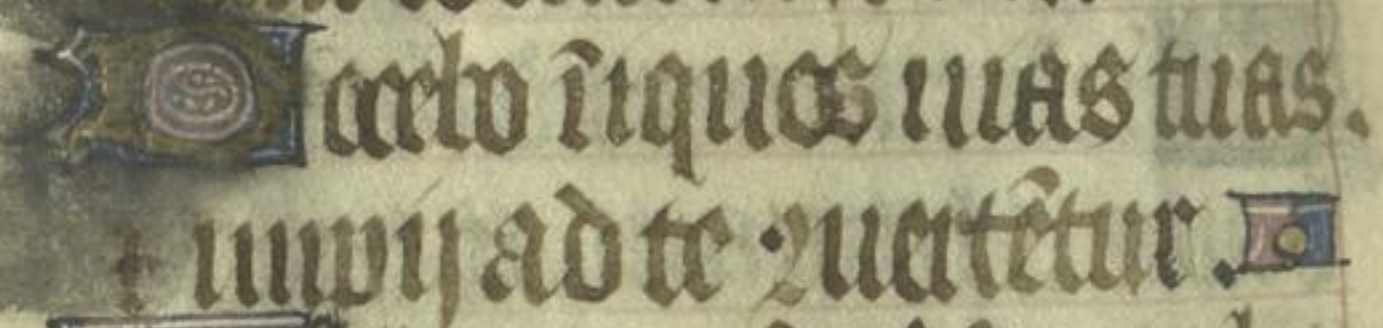 Docebo iniquos uias tuas.
et impij ad te ꝯuertẽtur.